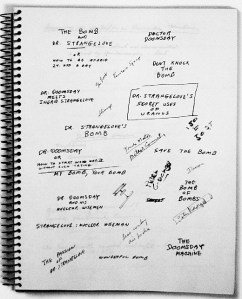 THE BOMB
AND
DR. STRANGELOVE
OR
HOW TO BE AFRAID
24 HRS A DAY
DOCTOR
DOOMSDAY
DON'T KNOCK
THE
BOMB
DR. DOOMSDAY
MEETS
INGRID STRANGELOVE
DR. STRANGELOVE'S
SECRET USES
OF
URANUS
DR. STRANGELOVE'S
BOMB
DR. DOOMSDAY
OR
HOW TO START WORLD WAR III
WITHOUT EVEN TRYING
SAVE THE BOMB
MY BOMB, YOUR BOMB
DR. DOOMSDAY
AND HIS
NUCLEAR WISEMEN
THE
BOMB
OF
BOMBS
STRANGELOVE: NUCLEAR WISEMAN
THE PASSION
OF
DR. STRANGELOVE
WONDERFUL BOMB
THE
DOOMSDAY
MACHINE